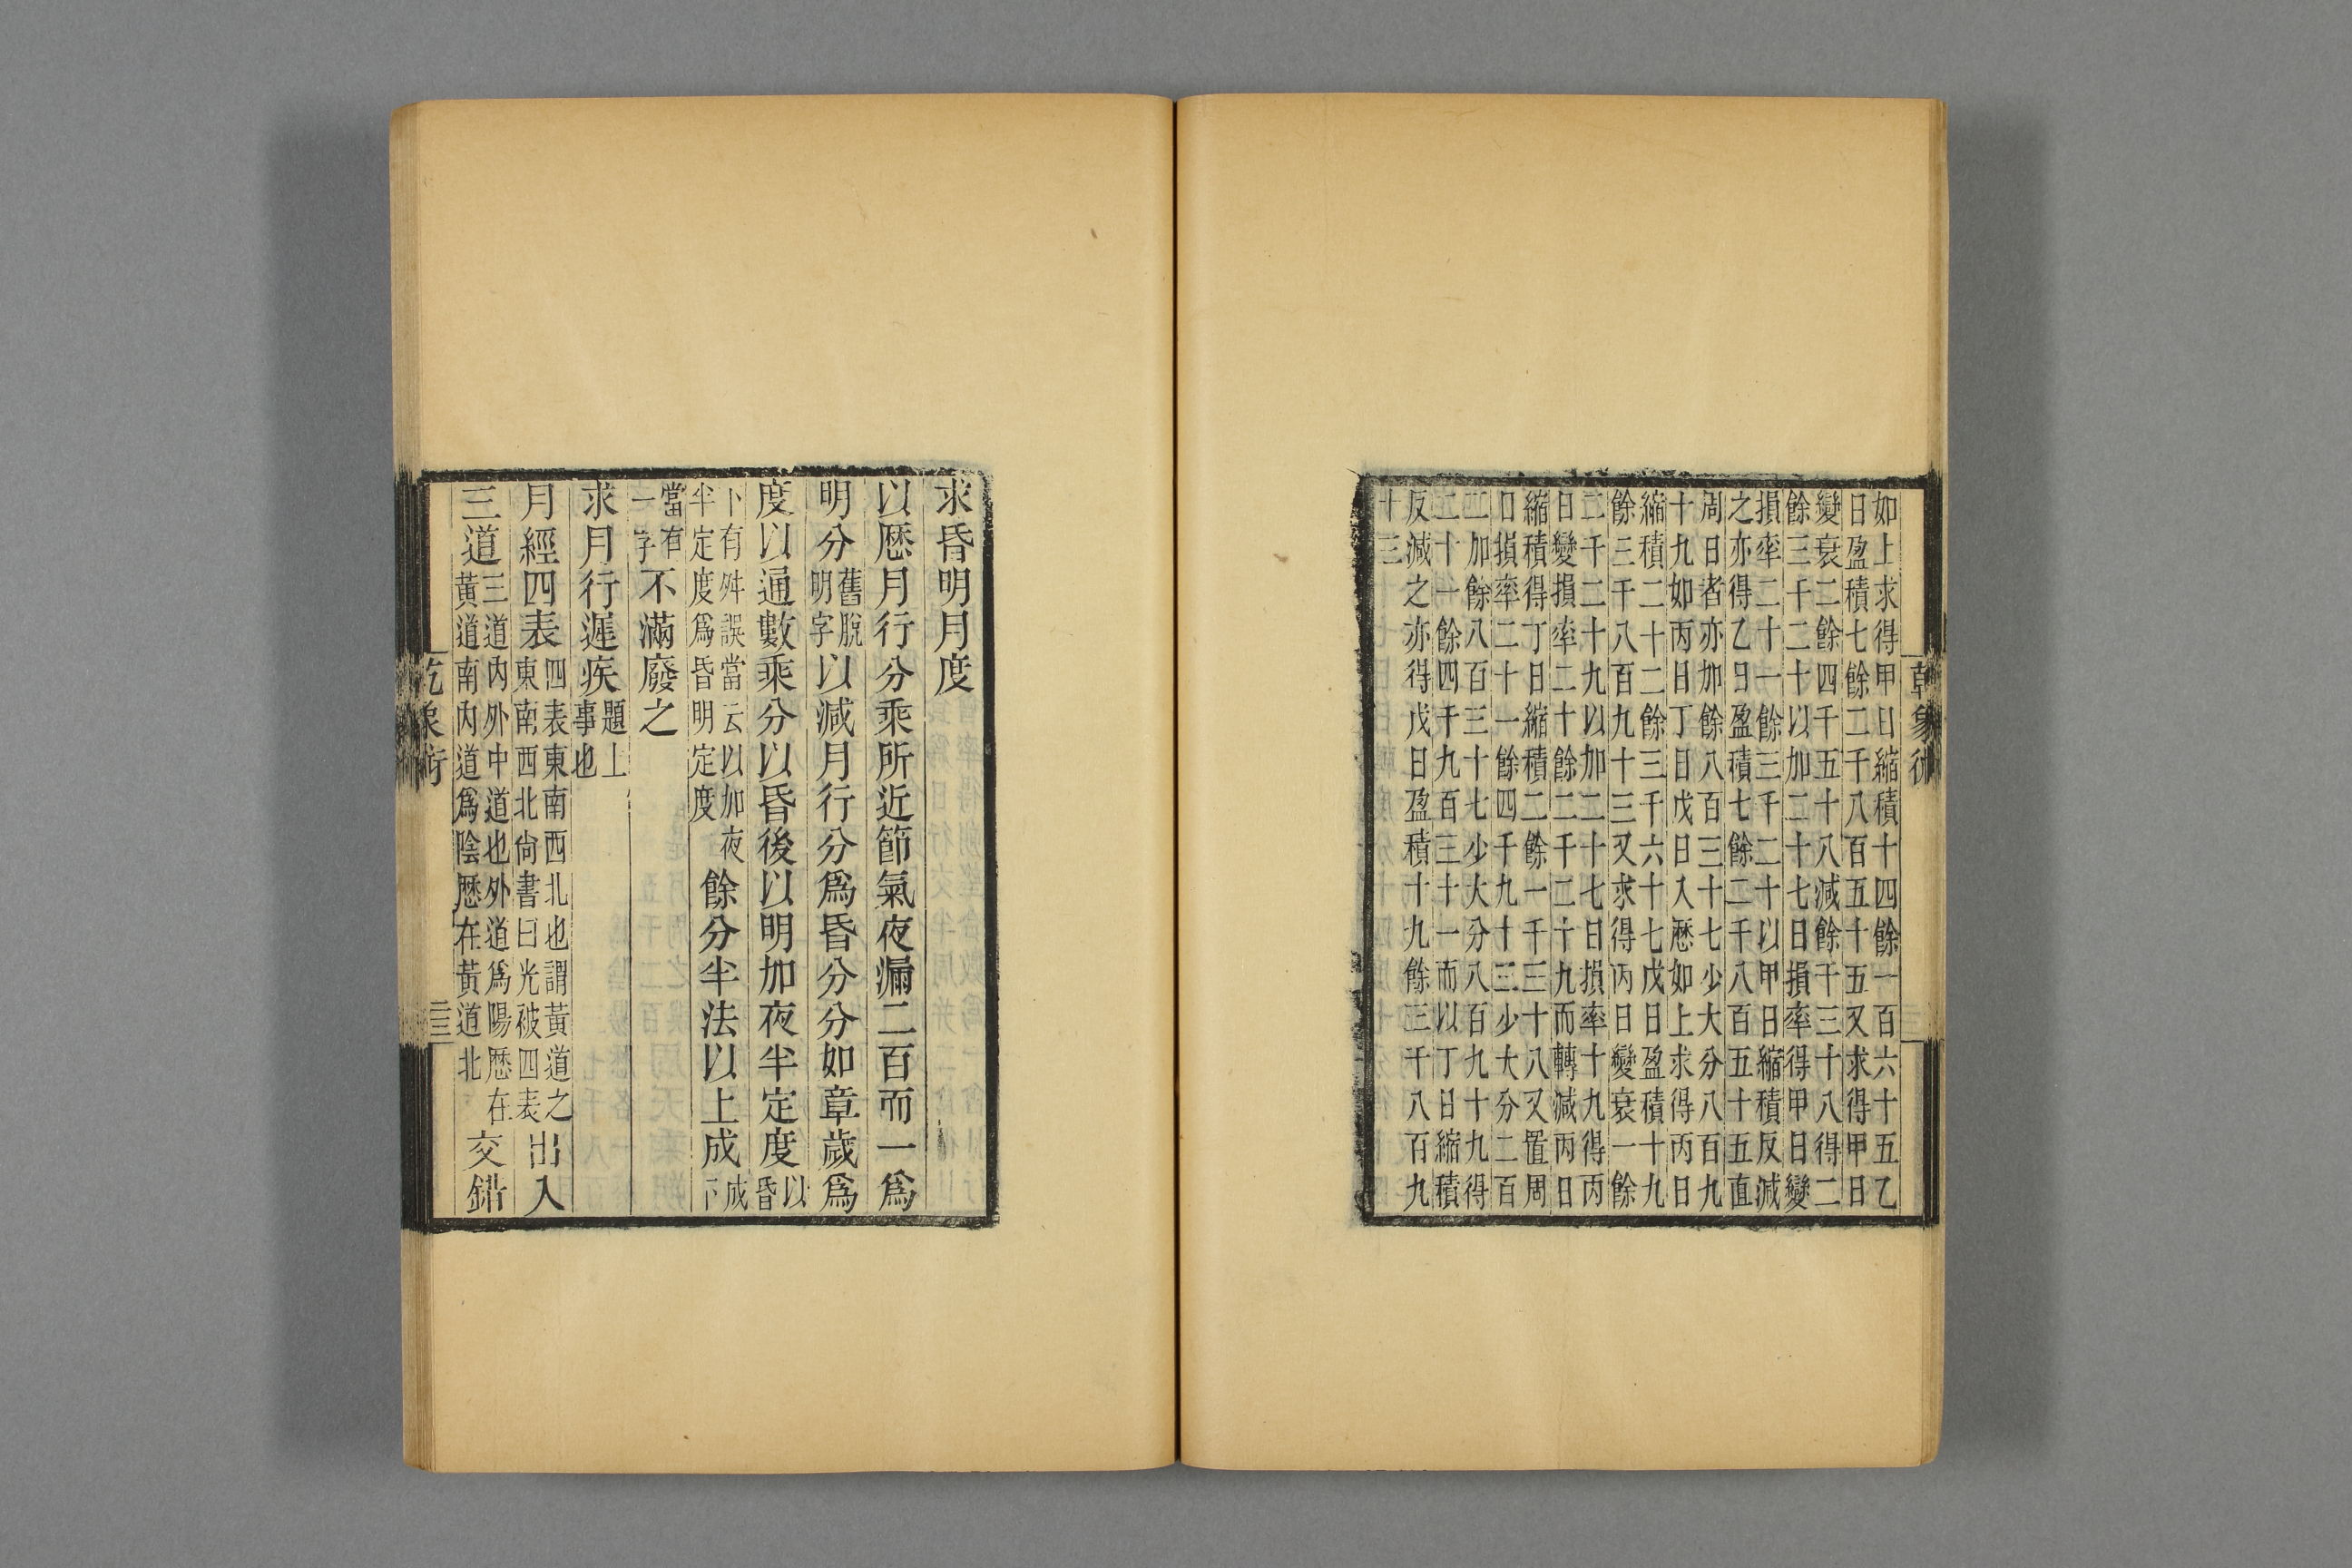 乾象術
如上求得甲日縮積十四餘一百六十五乙
日盈積七餘二千八百五十五又求得甲日
變衰二餘四千五十八減餘千三十八得二
餘三千二十以加二十七日損率得甲日變
損率二十一餘三千二十以甲日縮積反減
之亦得乙日盈積七餘二千八百五十五直
周日者亦加餘八百三十七少大分八百九
十九如丙日丁日戊日入歷如上求得丙日
縮積二十二餘三千六十七戊日盈積十九
餘三千八百九十三又求得丙日變衰一餘
二千二十九以加二十七日損率十九得丙
日變損率二十餘二千二十九而轉減丙日
縮積得丁日縮積二餘一千三十八又置周
日損率二十一餘四千九十三少大分二百
二加餘八百三十七少大分八百九十九得
二十一餘四千九百三十一而以丁日縮積
反減之亦得戊日盈積十九餘三千八百九
十三
求昏明月度
以歷月行分乘所近節氣夜漏二百而一爲
明分舊脫明字以減月行分爲昏分分如章歲爲
度以通數乘分以昏後以明加夜半定度以昏
餘分半法以上成成下
卜有舛誤當云以加夜半定度爲昏明定度
當有一字不滿廢之
求月行遲疾題上事也
月經四表四表東南西北也謂黃道之東南西北尙書曰光被四表出入
三道三道內外中道也外道爲陽歷在黃道南內道爲陰歷在黃道北交錯
乾象術
三三